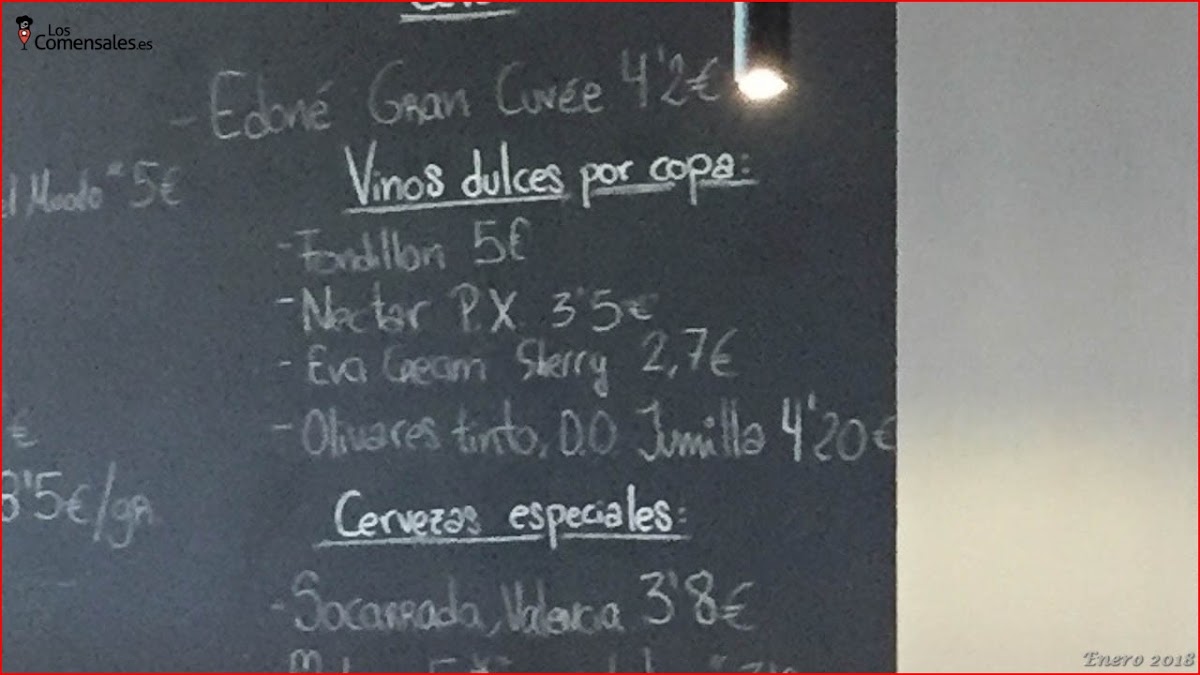 Los
Comensales.es
- Edoné Gran Cuvée 4'2€
Vinos dulces por copa:
5€
- Fondillon 5€
- Nectar P.X. 3'5€
- Eva Cream Sherry 2,7€
- Olivares tinto, D.O. Jumilla 4'20€
€
3'5€/gr.
Cervezas especiales:
- Socarrada, Valencia 3'8€
Enero 2018